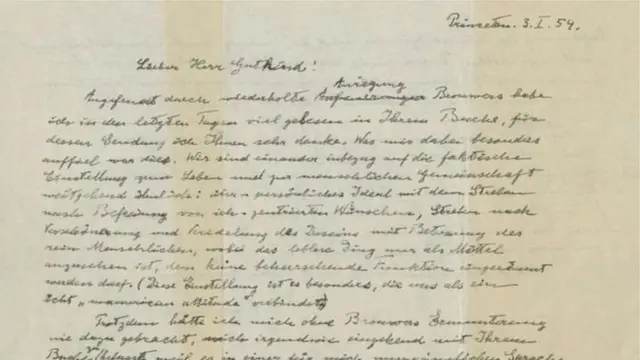 Princeton. 3. I. 54.
Lieber Herr Gutkind!
Anregung
Angefeuert durch wiederholte Brouwers habe
ich in den letzten Tagen viel gelesen in Ihrem Buche, für
dessen Sendung ich Ihnen sehr danke. Was mir dabei besonders
auffiel war dies. Wir sind einander inbezug auf die faktische
Einstellung zum Leben und zur menschlichen Gemeinschaft
weitgehend ähnlich: über-persönliches Ideal mit dem Streben
nach Befreiung von ich-zentrierten Wünschen, Streben nach
Verschönerung und Veredelung des Daseins mit Betonung des
rein Menschlichen, wobei das leblose Ding nur als Mittel
anzusehen ist, dem keine beherrschende Funktion eingeräumt
werden darf. (Diese Einstellung ist es besonders, die uns als ein
echt „unamerican attitude" verbindet)
Trotzdem hätte ich mich ohne Brouwers Ermunterung
nie dazu gebracht, mich irgendwie eingehend mit Ihrem
Buch weil es in einer für mich Sprache